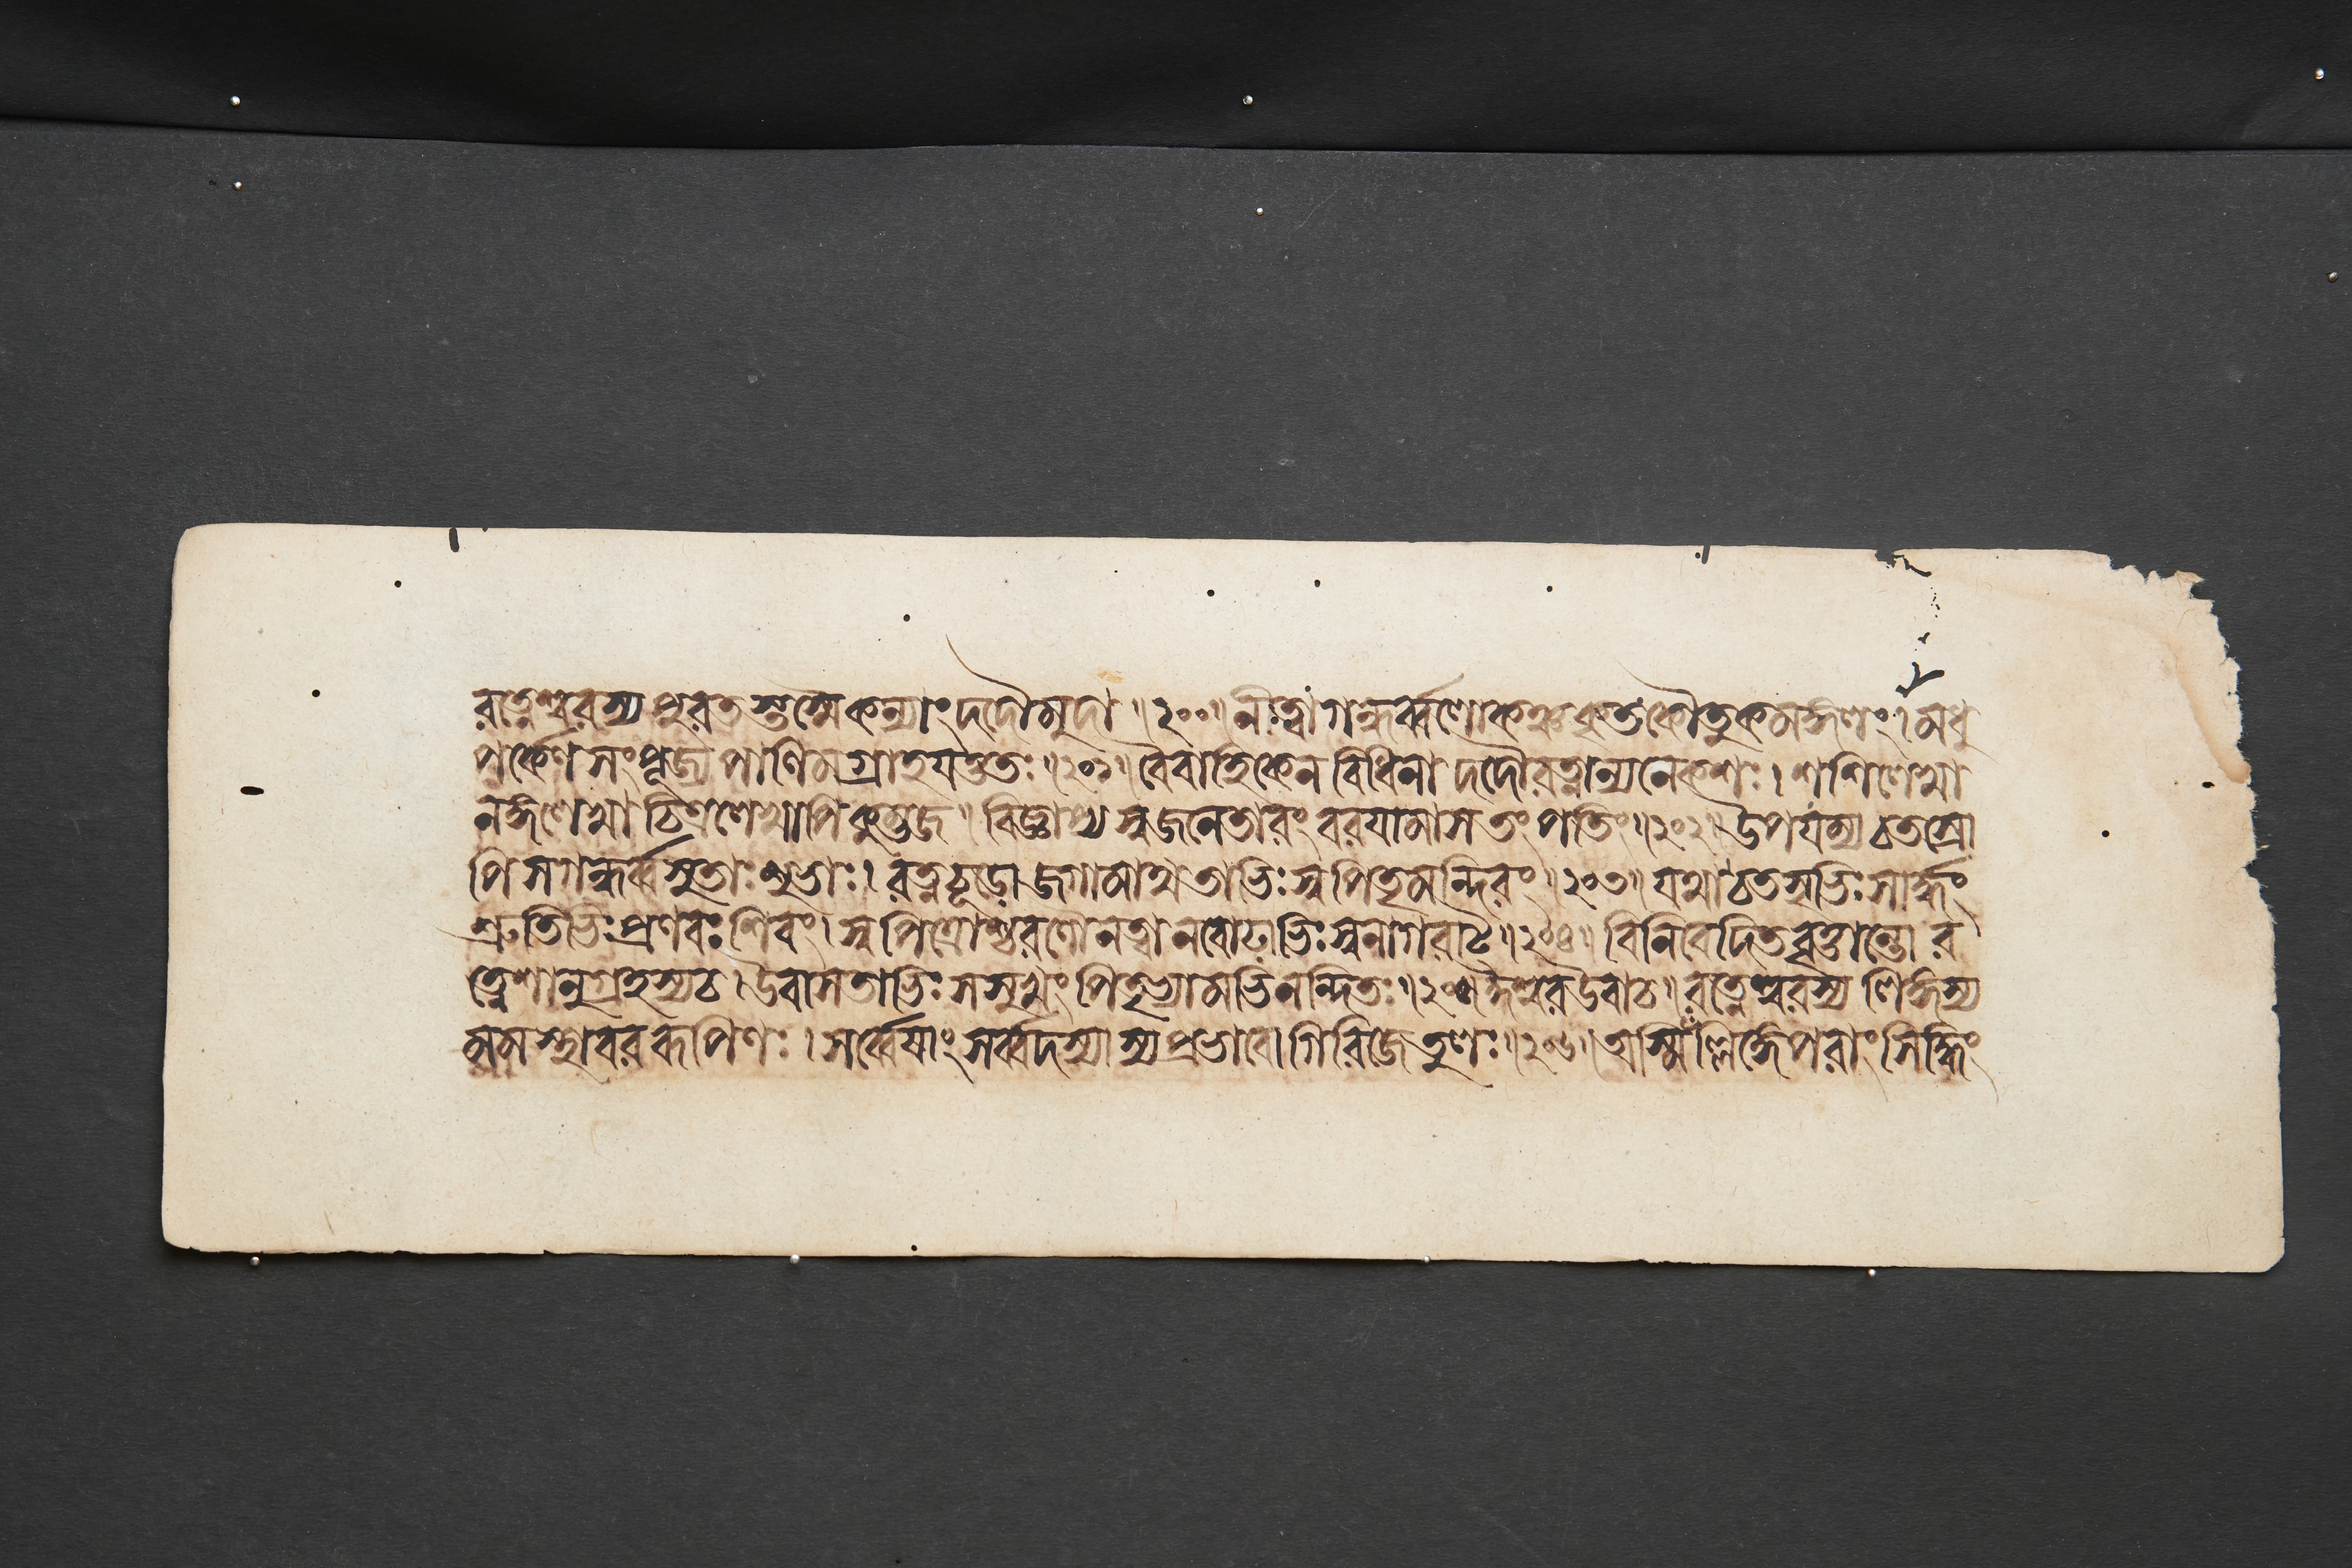 রত্নেশ্বরস্য পুরতস্তস্মৈ কন্যাং দদৌ মুদা ॥২০০॥ নীত্বা গন্ধর্ব্বলোকঞ্চ কৃতকৌতুকমঙ্গলং । মধু
পর্কেণ সংপূজ্য পাণিমগ্রাহযত্ততঃ ॥২০১॥ বৈবাহিকেন বিধিনা দদৌ রত্নান্যনেকশঃ । শশিলেখা
নঙ্গলেখা চিত্রলেখাপি কুম্ভজ ॥ বিজ্ঞাপ্য স্বজনেতারং বরযামাস তং পতিং ॥২০২॥ উপযম্য চতস্রো
পি স গন্ধর্ব্বসুতাঃ শুভাঃ । রত্নচূডো জগামাথ তাভিঃ স্বপিতৃমন্দিরং ॥২০৩॥ যথা চতসৃভিঃ সার্দ্ধং
শ্রুতিভিঃ প্রণবঃ শিবং । স্বপিত্রোশ্চরণৌ নত্বা নবোঢাভিঃ স্বনাগরাট্ ॥২০৪॥ বিনিবেদিতবৃত্তান্তো র
ত্নেশানুগ্রহস্য চ । উবাস তাভিঃ সসুখং পিতৃভ্যামভিনন্দিতঃ ॥২০৫॥ ঈশ্বর উবাচ ॥ রত্নেশ্বরস্য লিঙ্গস্য
মম স্থাবররূপিণঃ । সর্ব্বেষাং সর্ব্বদস্যাস্য প্রভাবো গিরিজেতুলঃ ॥২০৬॥ অস্মিঁল্লিঙ্গে পরাং সিদ্ধিং